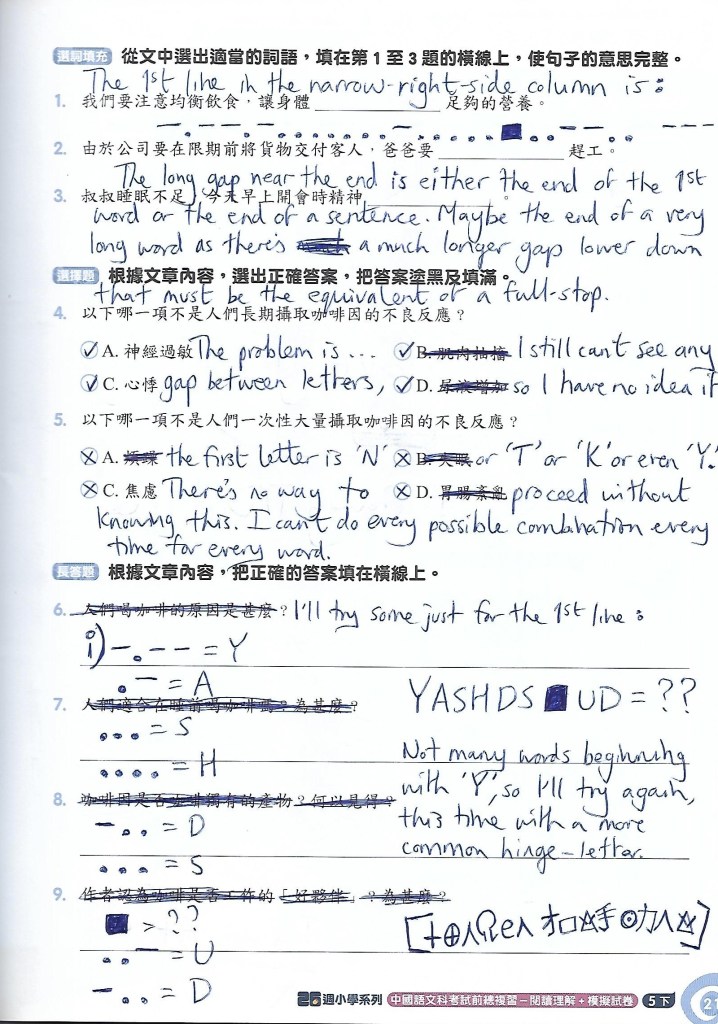 選詞填充 從文中選出適當的詞語，填在第1至3題的橫線上，使句子的意思完整。
The 1st line in the narrow right-side column is:
1. 我們要注意均衡飲食，讓身體____________足夠的營養。
2. 由於公司要在限期前將貨物交付客人，爸爸要____________趕工。
The long gap near the end is either the end of the 1st
3. 叔叔睡眠不足，今天早上開會時精神____________。
word or the end of a sentence. Maybe the end of a very
long word as there's a much longer gap lower down
選擇題 根據文章內容，選出正確答案，把答案塗黑及填滿。
that must be the equivalent of a full-stop.
4. 以下哪一項不是人們長期攝取咖啡因的不良反應？
A. 神經過敏 The problem is ... B. 肌肉抽搐 I still can't see any
C. 心悸 gap between letters, D. 尿液增加 so I have no idea if
5. 以下哪一項不是人們一次性大量攝取咖啡因的不良反應？
A. the first letter is 'N' B. or 'T' or 'K' or even 'Y'.
C. 焦慮 There's no way to D. 胃腸紊亂 proceed without
knowing this. I can't do every possible combination every
time for every word.
長答題 根據文章內容，把正確的答案填在橫線上。
6. 人們喝咖啡的原因是甚麼？ I'll try some just for the 1st line:
i) -.-- = Y
.- = A
7. 人們適合在睡前喝咖啡嗎？為甚麼？
YASHDS ■ UD = ??
... = S
.... = H
Not many words beginning
with 'Y', so I'll try again,
8. 咖啡因是否咖啡獨有的產物？何以見得？
this time with a more
-.. = D
common hinge-letter.
... = S
9. 作者認為咖啡是否工作的「好夥伴」？為甚麼？
■ > ??
..- = U
-.. = D
26週小學系列 中國語文科考試前總複習－閱讀理解＋模擬試卷 5下 21